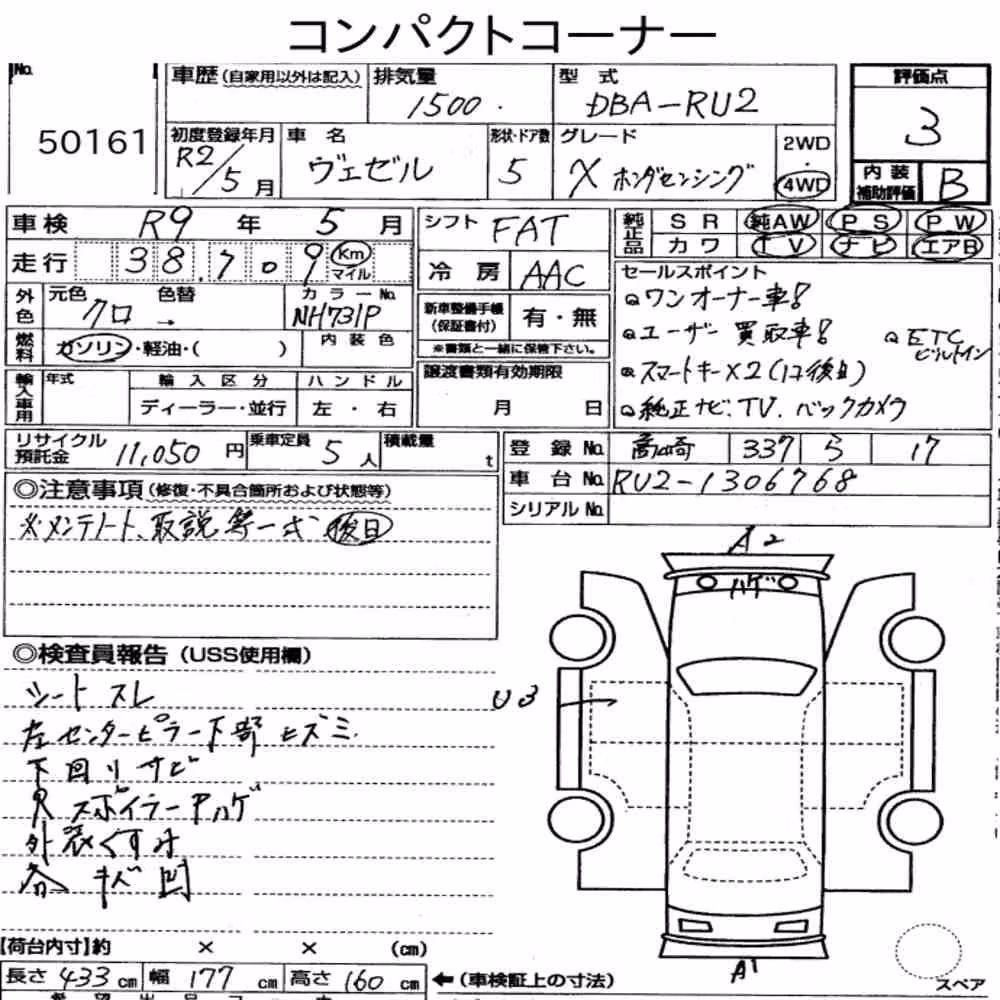 コンパクトコーナー
No. 車歴(自家用以外は記入) 排気量 型式 評価点
50161 1500. DBA-RU2 3
初度登録年月 車名 形状・ドア数 グレード 2WD・4WD
R2/5月 ヴェゼル 5 X ホンダセンシング
内装補助評価 B
車検 R9年 5月 シフト FAT 純正品 SR 純AW PS PW
カワ TV ナビ エアB
走行 38,709 Km マイル 冷房 AAC
セールスポイント
外色 元色 色替 カラーNo. 新車整備手帳(保証書付) 有・無
クロ → NH731P ※書類と一緒に保管下さい。
ワンオーナー車!
ユーザー買取車! ETCビルトイン
スマートキー×2(1ケ後日)
純正ナビ.TV.バックカメラ
燃料 ガソリン・軽油・( ) 内装色
輸入車用 年式 輸入区分 ハンドル 譲渡書類有効期限
ディーラー・並行 左・右 月 日
リサイクル預託金 11,050円 乗車定員 5人 積載量 t
登録No. 高崎 337 ら 17
車台No. RU2-1306768
シリアルNo.
◎注意事項(修復・不具合箇所および状態等)
※メンテノート、取説等一式 後日
◎検査員報告(USS使用欄)
シートスレ
左センターピラー下部ヒズミ
下回りサビ
Rスポイラーアハゲ
外装くすみ
各キズ凹
A2
ハゲ
U3
A1
【荷台内寸】約 × × (cm)
長さ 433cm 幅 177cm 高さ 160cm ←(車検証上の寸法)
スペア